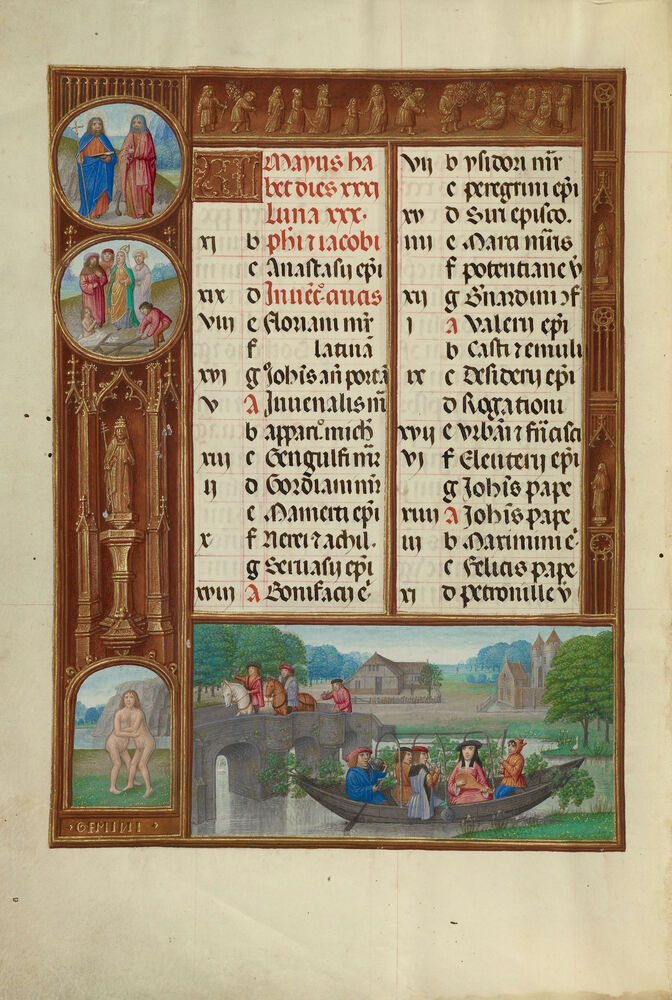 KL Mayus ha
bet dies xxxi
Luna xxx.
xi b phi ⁊ iacobi
c Anastasij epi
xix d Inuēc̄ crucis
viii e Floriani mr̄
f latinā
xvi g Johīs añ portā
v A Juuenalis m̄
b apparic̄ mich
xiii c Gengulfi mr̄
ii d Gordiani mr̄
e Mamerti epi
x f Nerei ⁊ achil.
g Seruasij epi
xviii A Bonifacij ē
vii b ysidori mr̄
c peregrini epi
xv d Siri episco.
iiii e Marci mr̄is
f potentiane v̄
xii g Bn̄ardini ɔf
i A Valerij epi
b Casti ⁊ emuli
ix c Desiderij epi
d Rogationi
xvii e vrbāi ⁊ fñcisci
vi f Eleuterij epi
g Johīs pape
xiiii A Johīs pape
iii b Maximini ē
c Felicis pape
xi d petronille v̄
GEMINI